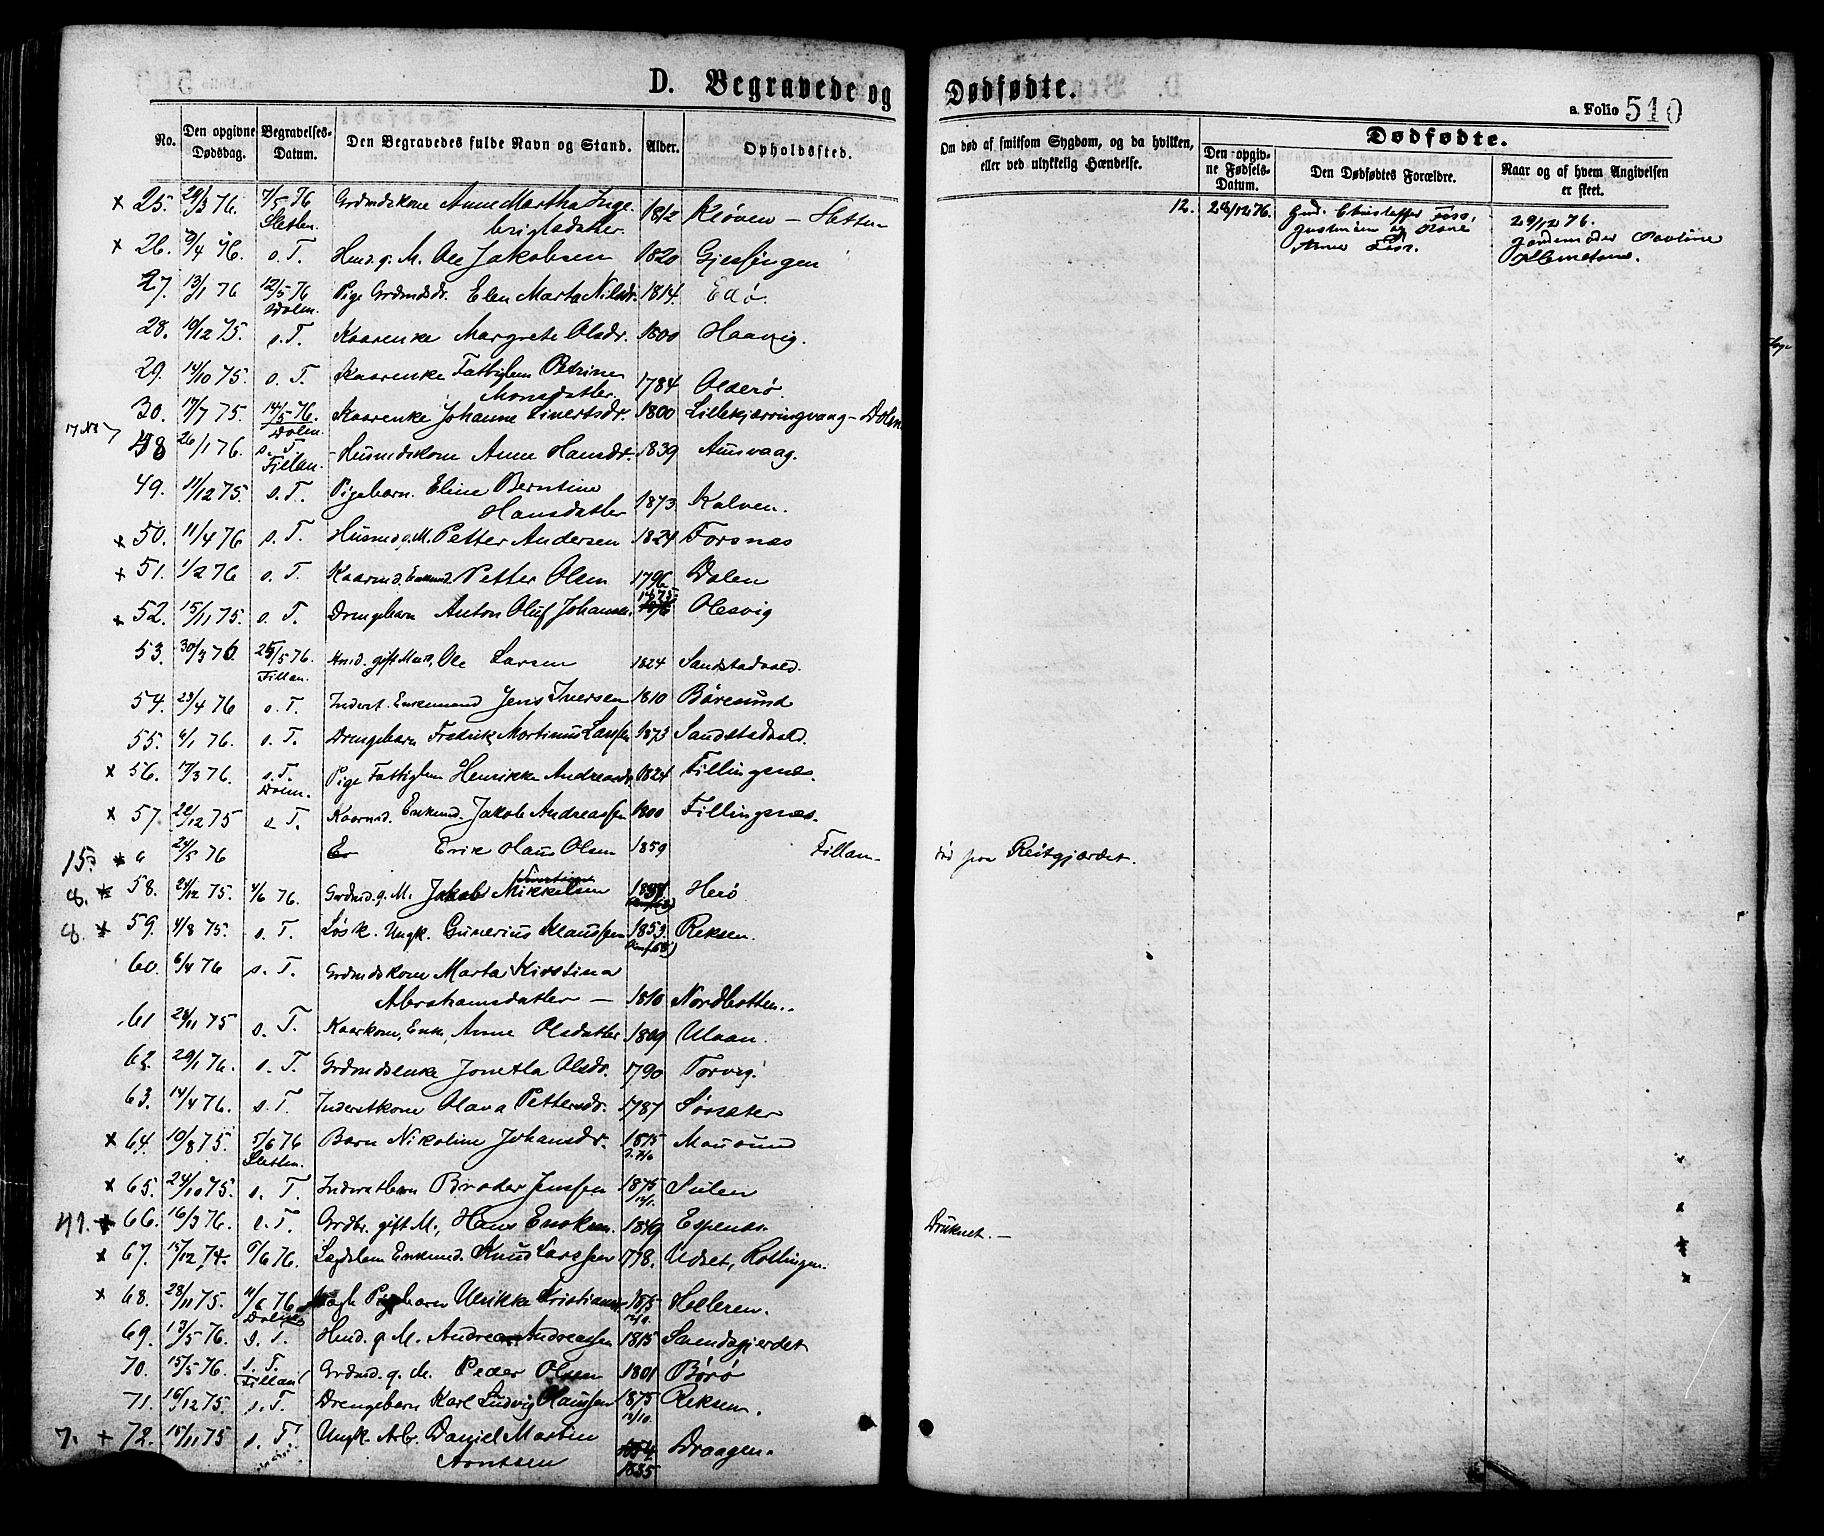 D. Begravede og Dødfødte.
a. Folio 510
No. Den opgivne Dødsdag. Begravelses-Datum. Den Begravedes fulde Navn og Stand. Alder. Opholdssted.
Om død af smitsom Sygdom, og da hvilken, eller ved ulykkelig Hændelse.
Dødfødte.
Den opgivne Fødsels-Datum. Den Dødfødtes Forældre. Naar og af hvem Angivelsen er skeet.
x 25. 76. 7/5 76 Sletten. Grdmdskone Anne Martha Inge
brigtsdatter. 1812 Kløven – Sletten
12. 12 76. Gmd. Christoffer Foss,
29/12 76.
Jordemoder
x 26. 9/4 76. s. T. Hmd. g. M. Ole Jakobsen 1820 Gjessingen
27. 13/1 76 12/5 76 Dolm. Pige Grdmdsdr. Elen Marta Nilsdr. 1814. Edø.
28. 10/12 75. s. T. Kaarenke Margrete Olsdr. 1800 Haavig.
29. 14/10 75. s. T. Kaarenke Fattiglem Petrine
Monsdatter. 1784 Olderø
30. 17/7 75. 14/5 76. Dolm. Kaarenke Johanne Sivertsdr. 1800 Lillekjærringvaag – Dolm
48 26/1 76. s. T. Fillan. Husmdskone Anne Hansdr. 1839 Aunvaag.
49. 11/12 75. s. T. Pigebarn. Eline Berntine
Hansdatter 1873 Kalven.
x 50. 11/4 76 s. T. Husmd g. M. Petter Andersen 1824 Forsnæs
x 51. 1/2 76 s. T. Kaarmd. Enkemd. Petter Olsen 1796 Dalen
x 52. 15/11 75. s. T. Drengebarn Anton Oluf Johansen 1875 Olesvig
53. 30/3 76. 25/5 76. Fillan. Hmd. gift Mand, Ole Larsen 1824 Sandstadvald.
54. 23/4 76 s. T. Inderst. Enkemand Jens Iversen 1810 Børøsund
55. 6/1 76. s. T. Drengebarn Fredrik Martinus Larssen 1873 Sandstadvald.
x 56. 17/3 76. s. T. Dolm. Pige Fattiglem Henrikke Andreasdr. 1824 Fillingsnes.
x 57. 22/12 75 s T. Kaarmd. Enkemd. Jakob Andreassen 1800 Fillingsnæs.
15. x a 24/5 76 Erik Hans Olsen 1859 Fillan –
død paa Reitgjærdet.
8. x 58. 24/12 75. 4/6 76. Grdmd. g. M. Jakob Mikkelsen Herø
8. x 59. 4/8 75. s. T. Løsk. Ungk. Gunerius Klaussen 1853. Reksen.
60. 6/4 76 s. T. Grdmdskone Marta Kirstina
Abrahamsdatter – 1810 Nordbotten.
61 24/11 75 s. T. Kaarkone, Enke, Anne Olsdatter 1809 Ulvan.
62. 29/1 76. s. T. Grdmdsenke Jonetta Olsdr. 1790 Torvig.
63. 14/4 76. s. T. Inderstkone Olava Pettersdr. 1787 Sørsæter
x 64. 19/8 75. 5/6 76 Sletten. Barn Nikoline Johansdr. 1875 Mausund
x 65. 24/10 75. s. T. Inderstbarn Broder Jenssen 1875 Sulen
41. x 66. 16/3 76. s. T. Grdbr. gift M., Hans Eriksen. 1849 Espenes.
Druknet. –
x 67. 15/12 74. 6/6 76. Lægdslem Enkemd. Knud Larssen 1798. Udset, Kollingen.
x 68. 28/11 75. 11/6 76 Pigebarn Ulrikke Kristiansdr. 1875 Helleren.
69. 13/5 76. s. T. Hmd. g. M. Andreas Andreassen 1815 Svendsgjerdet
70. 15/5 76. s. T. Fillan Grdmd. g. M. Peder Olsen 1801 Børø
71. 16/12 75. s. T. Drengebarn Karl Ludvig Klaussen 1875 12/10. Reksen.
7. x 72. 15/11 75 s. T. Ungk. Arb. Daniel Martin
Arntsen 1835 Draagen.